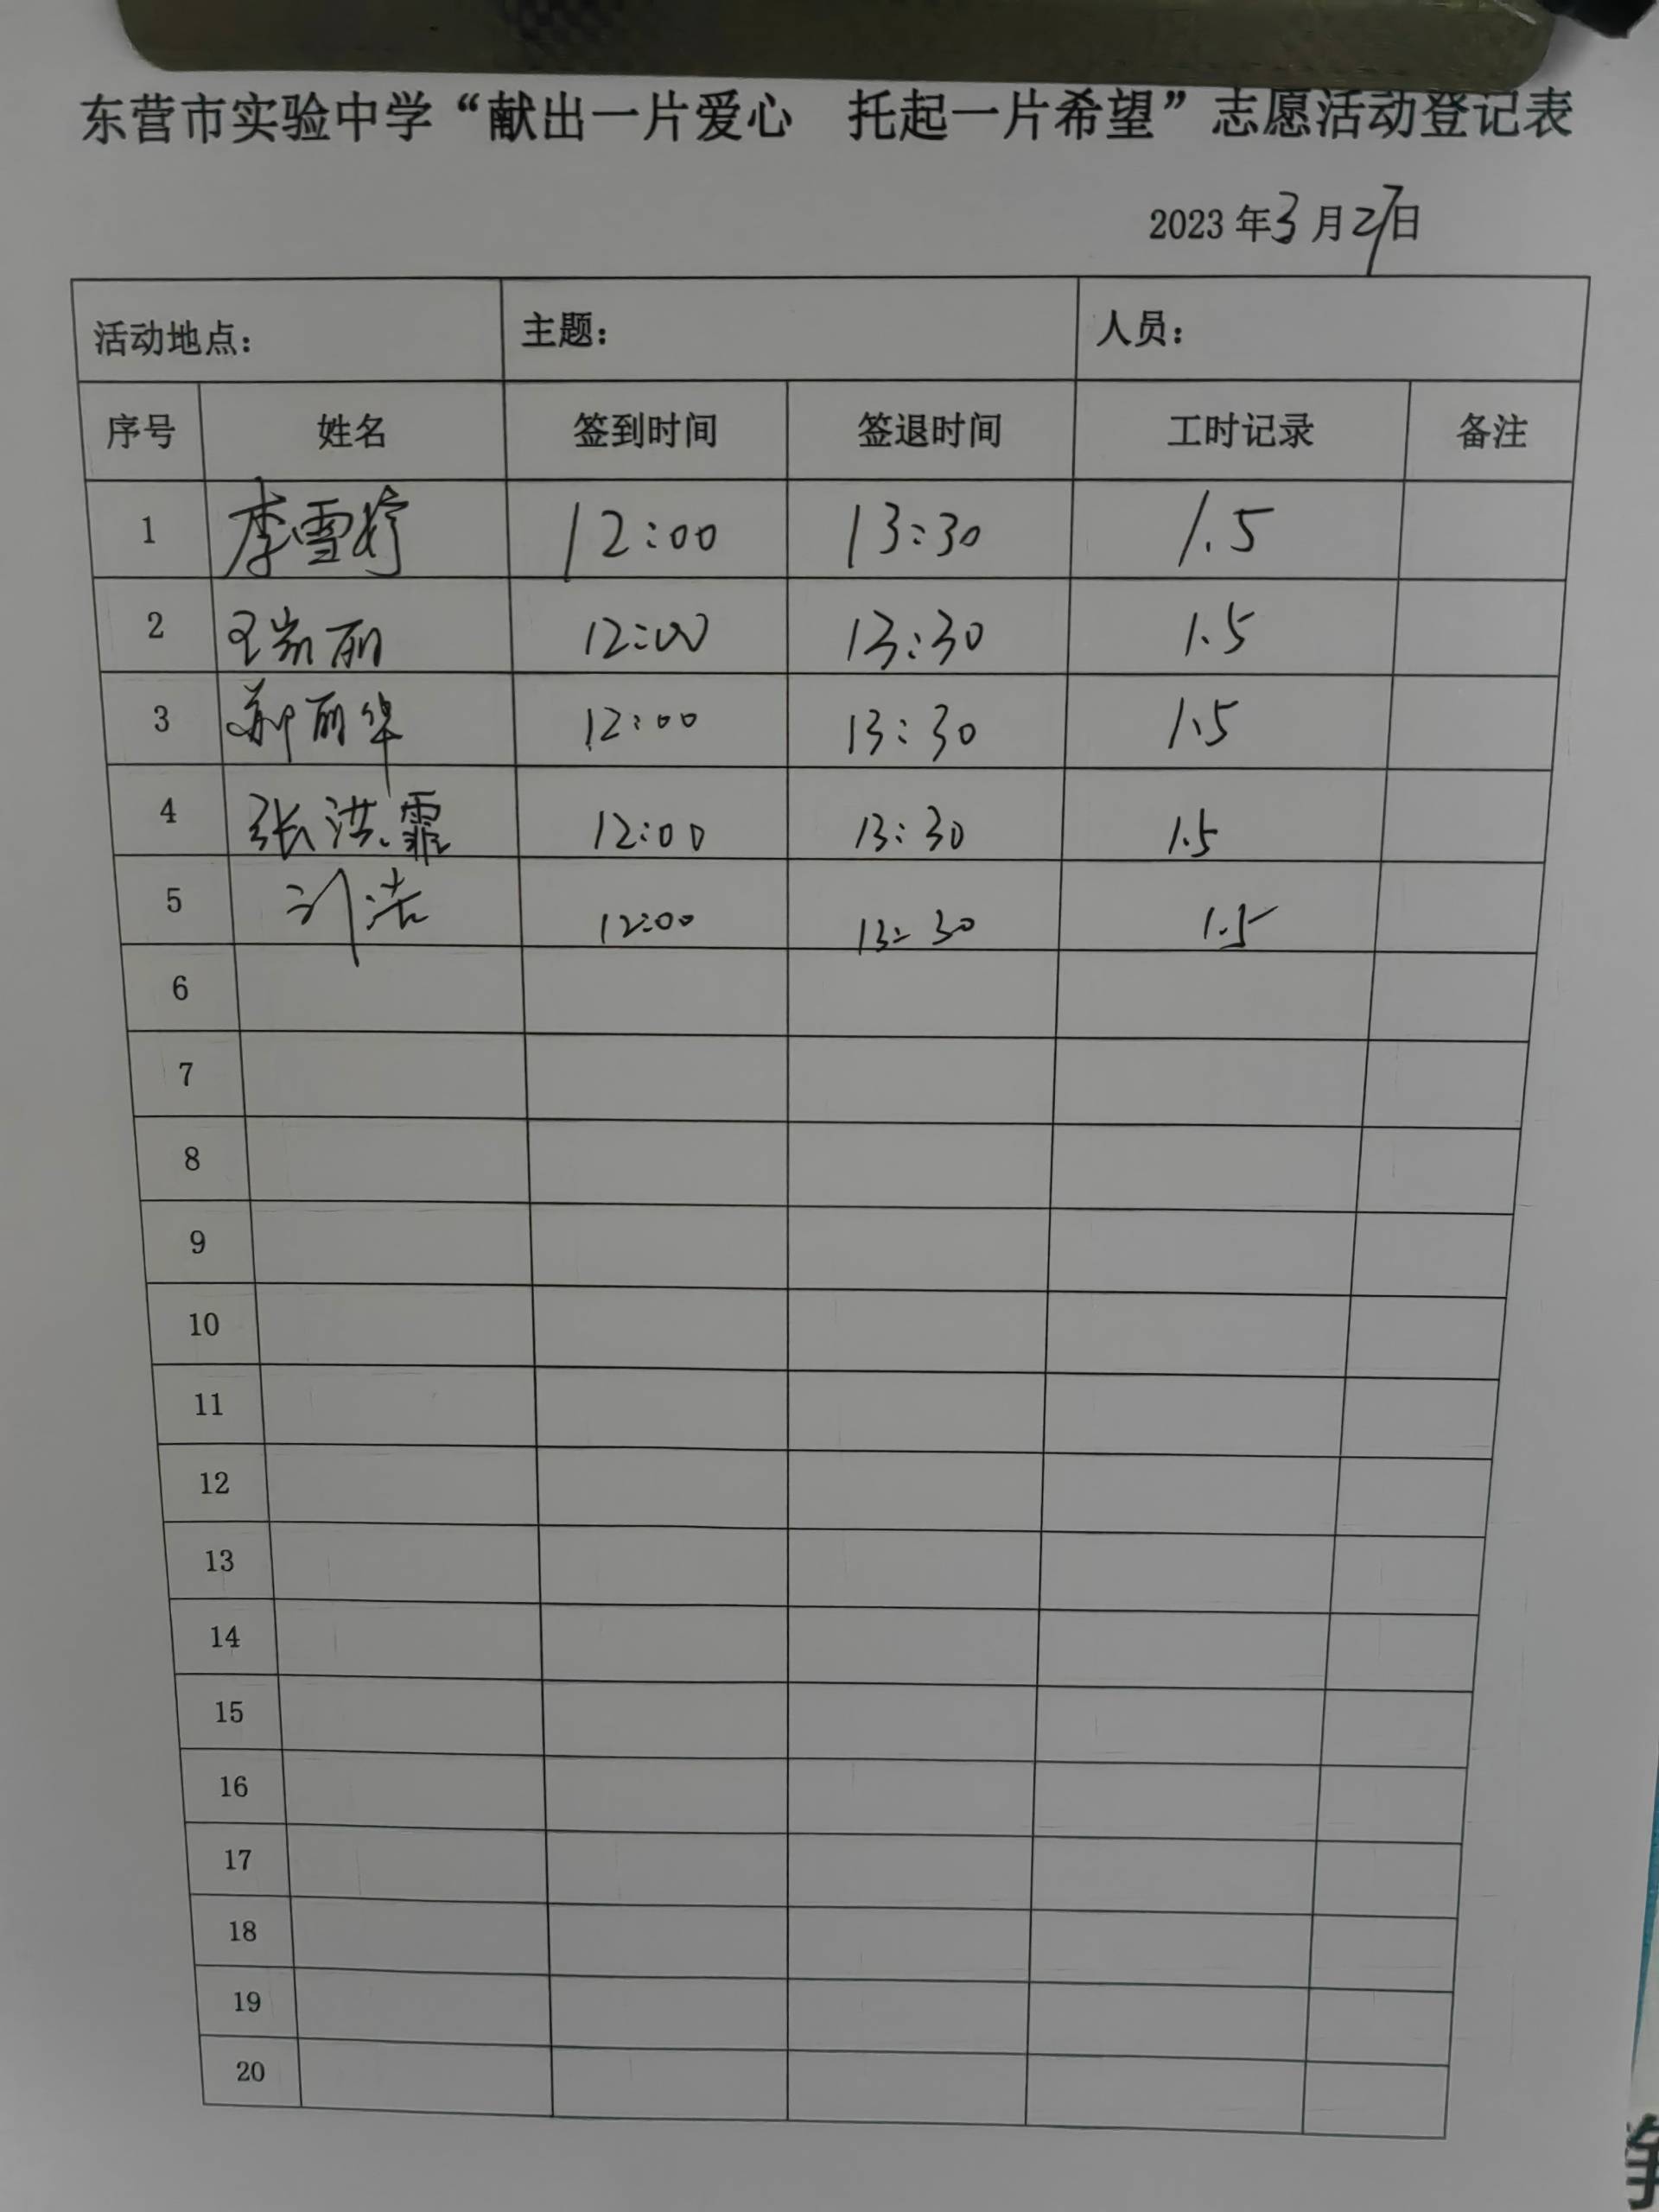 东营市实验中学“献出一片爱心 托起一片希望”志愿活动登记表
2023年3月27日
活动地点： 主题： 人员：
序号 姓名 签到时间 签退时间 工时记录 备注
1 李雪婷 12:00 13:30 1.5
2 王凯丽 12:00 13:30 1.5
3 郑丽华 12:00 13:30 1.5
4 张洪霏 12:00 13:30 1.5
5 刘浩 12:00 13:30 1.5
6
7
8
9
10
11
12
13
14
15
16
17
18
19
20